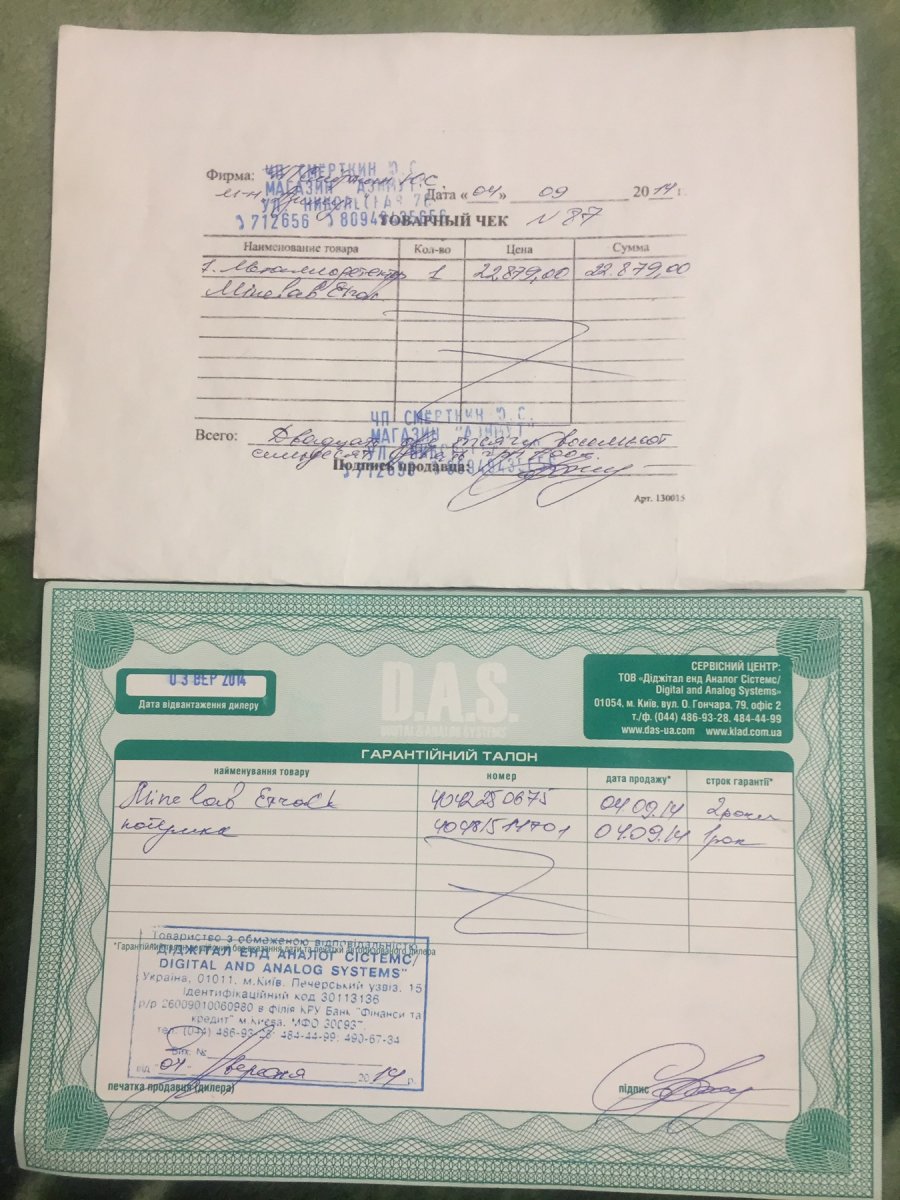 Фирма: ЧП СМЕРТКИН Ю.С.
МАГАЗИН "АЗИМУТ"
Дата «04» 09 2014 г.
712656
ТОВАРНЫЙ ЧЕК N 87
Наименование товара Кол-во Цена Сумма
1. Металлодетектор 1 22879,00 22879,00
Minelab Etrac
ЧП СМЕРТКИН Ю.С.
МАГАЗИН "АЗИМУТ"
Всего: Двадцать две тысячи восемьсот
семьдесят девять грн 00 к.
Подпись продавца:
712656
Арт. 130015
03 ВЕР 2014
Дата відвантаження дилеру
D.A.S.
DIGITAL & ANALOG SYSTEMS
СЕРВІСНИЙ ЦЕНТР:
ТОВ «Діджітал енд Аналог Сістемс/
Digital and Analog Systems»
01054, м. Київ, вул. О. Гончара, 79, офіс 2
т./ф. (044) 486-93-28, 484-44-99
www.das-ua.com www.klad.com.ua
ГАРАНТІЙНИЙ ТАЛОН
найменування товару номер дата продажу* строк гарантії*
Minelab Etrack 4042250675 04.09.14 2 роки
котушка 04.09.14 1 рік
*Гарантійний талон не дійсний без вказання дати та печатки авторизованого дилера
Товариство з обмеженою відповідальністю
"ДІДЖІТАЛ ЕНД АНАЛОГ СІСТЕМС/
DIGITAL AND ANALOG SYSTEMS"
Україна, 01011, м.Київ, Печерський узвіз, 15
Ідентифікаційний код 30113136
р/р 26009010060980 в філія КРУ Банк "Фінанси та
кредит" м.Києва, МФО
тел. (044) 486-93-28; 484-44-99; 490-67-34
Вих. №
від 04 вересня 2014 р.
печатка продавця (дилера)
підпис